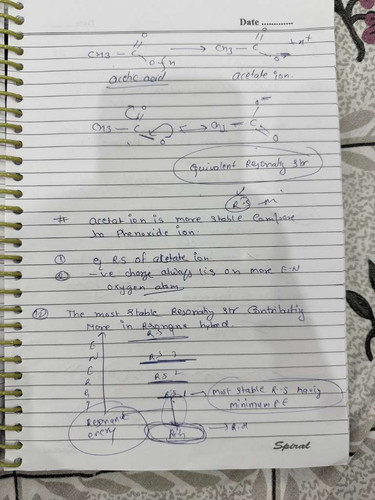 Date ............
O
O
CH3 - C
→
CH3 - C
+ H+
O-H
O
acetic acid
acetate ion.
O
CH3 - C
→
CH3 - C
O
O
Equivalent Resonating str
R.S
# acetat ion is more stable Compare
to Phenoxide ion.
① eq R.S of acetate ion
② -ve charge always lis on more E.N
oxygen atom.
The most stable Resonatig str Contributig
More in Resonans hybrid.
R.S
R.S
R.S 2
R.S 1
most stable R.S havig
minimum P.E
E
N
E
R
Resonanc
R.H
→ R.H
Spiral